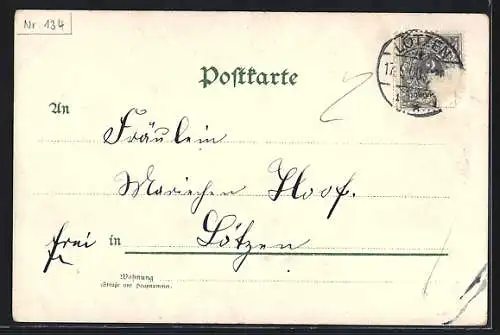 Nr. 134
LÖTZEN
Postkarte
An
Fräulein
Mariechen Hoof.
frei in Lötzen
Wohnung
(Straße und Hausnummer)